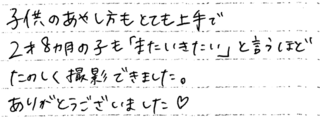 子供のあやし方もとても上手で
2才8ヵ月の子も「またいきたい」と言うほど
たのしく撮影できました。
ありがとうございました♡